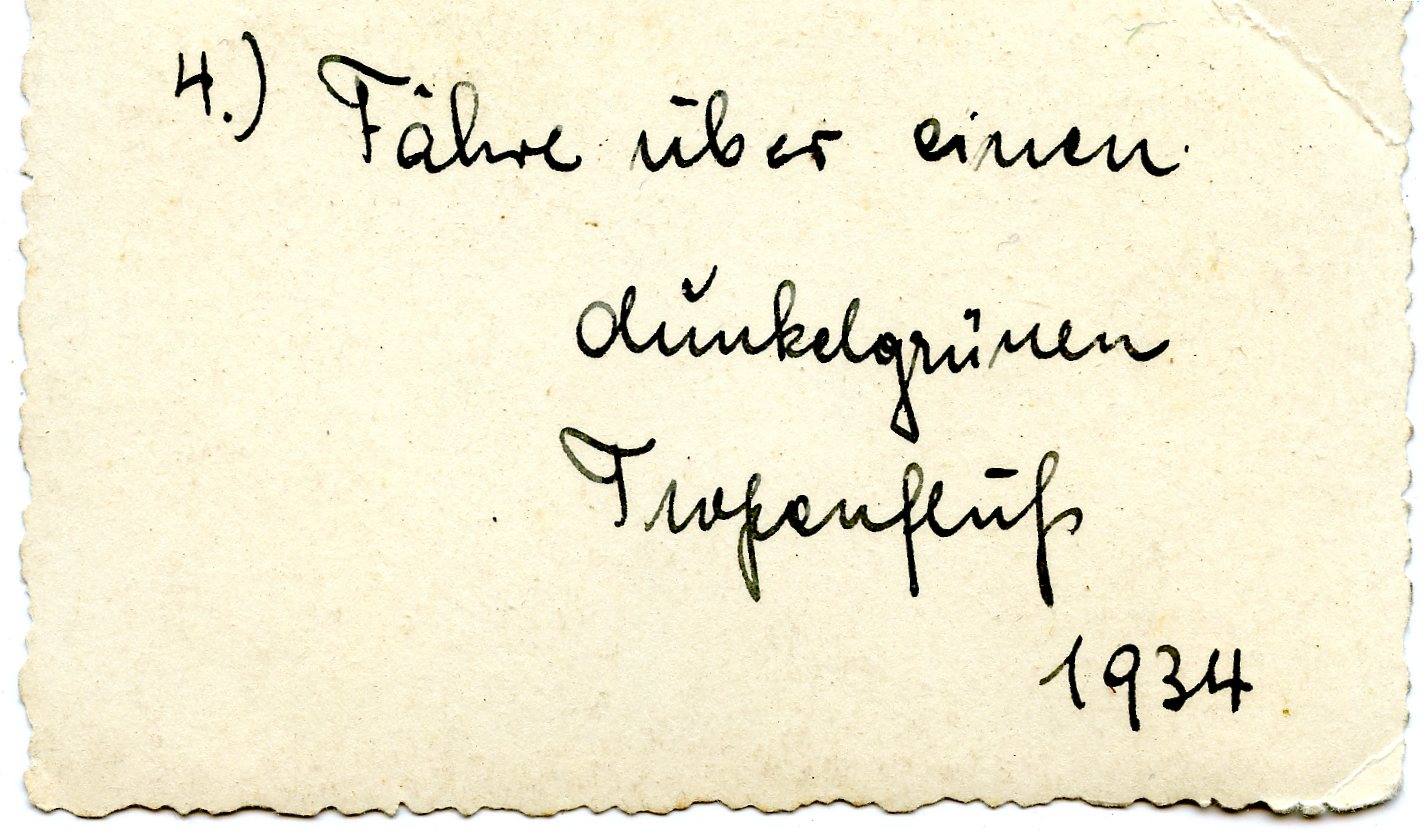 4.) Fähre über einen
dunkelgrünen
Tropenfluß
1934